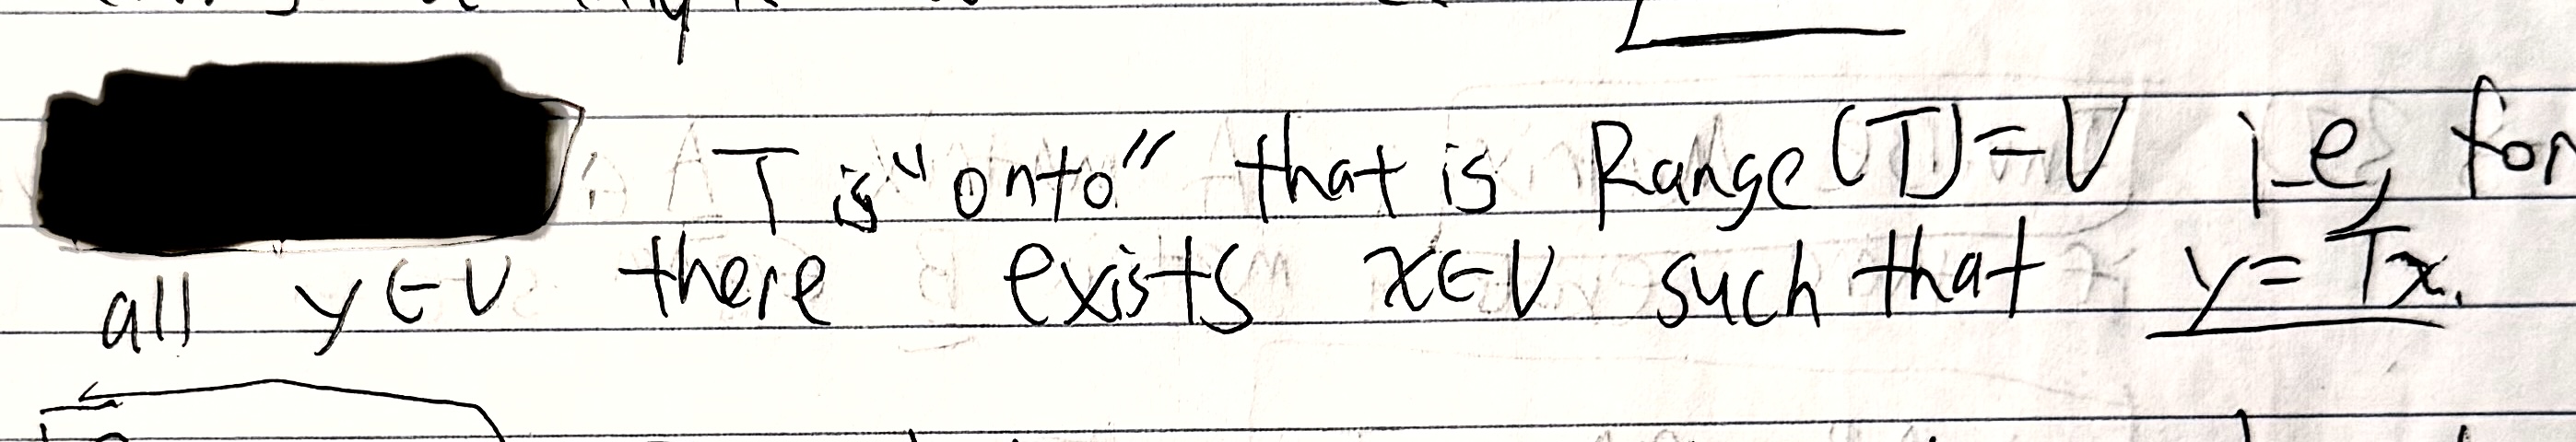 : T is "onto" that is Range(T)=V i.e, for
all y∈V there exists x∈V such that y=Tx.